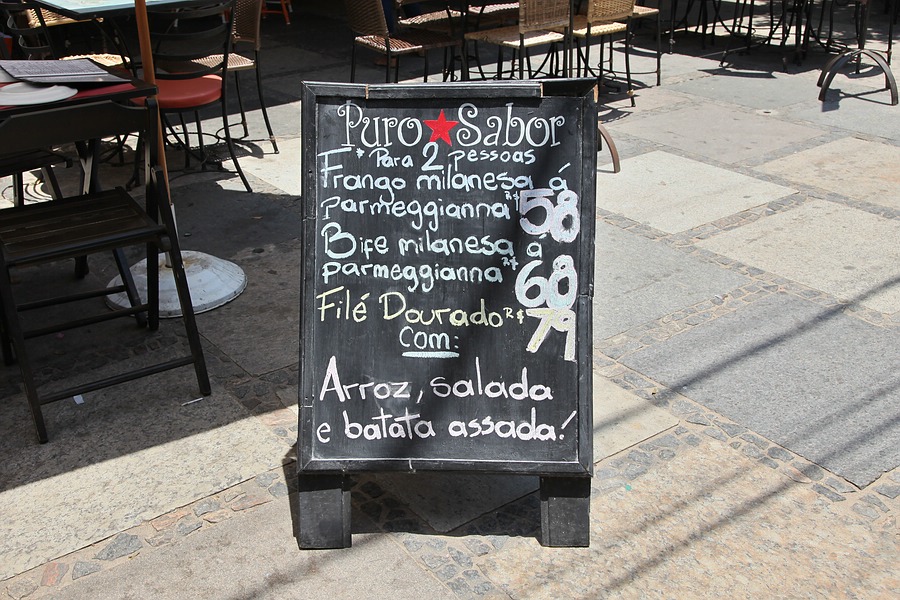 Puro★Sabor
*Para 2 pessoas
Frango milanesa á
parmeggianna R$ 58
Bife milanesa á
parmeggianna R$ 68
Filé Dourado R$ 79
Com:
Arroz, salada
e batata assada!